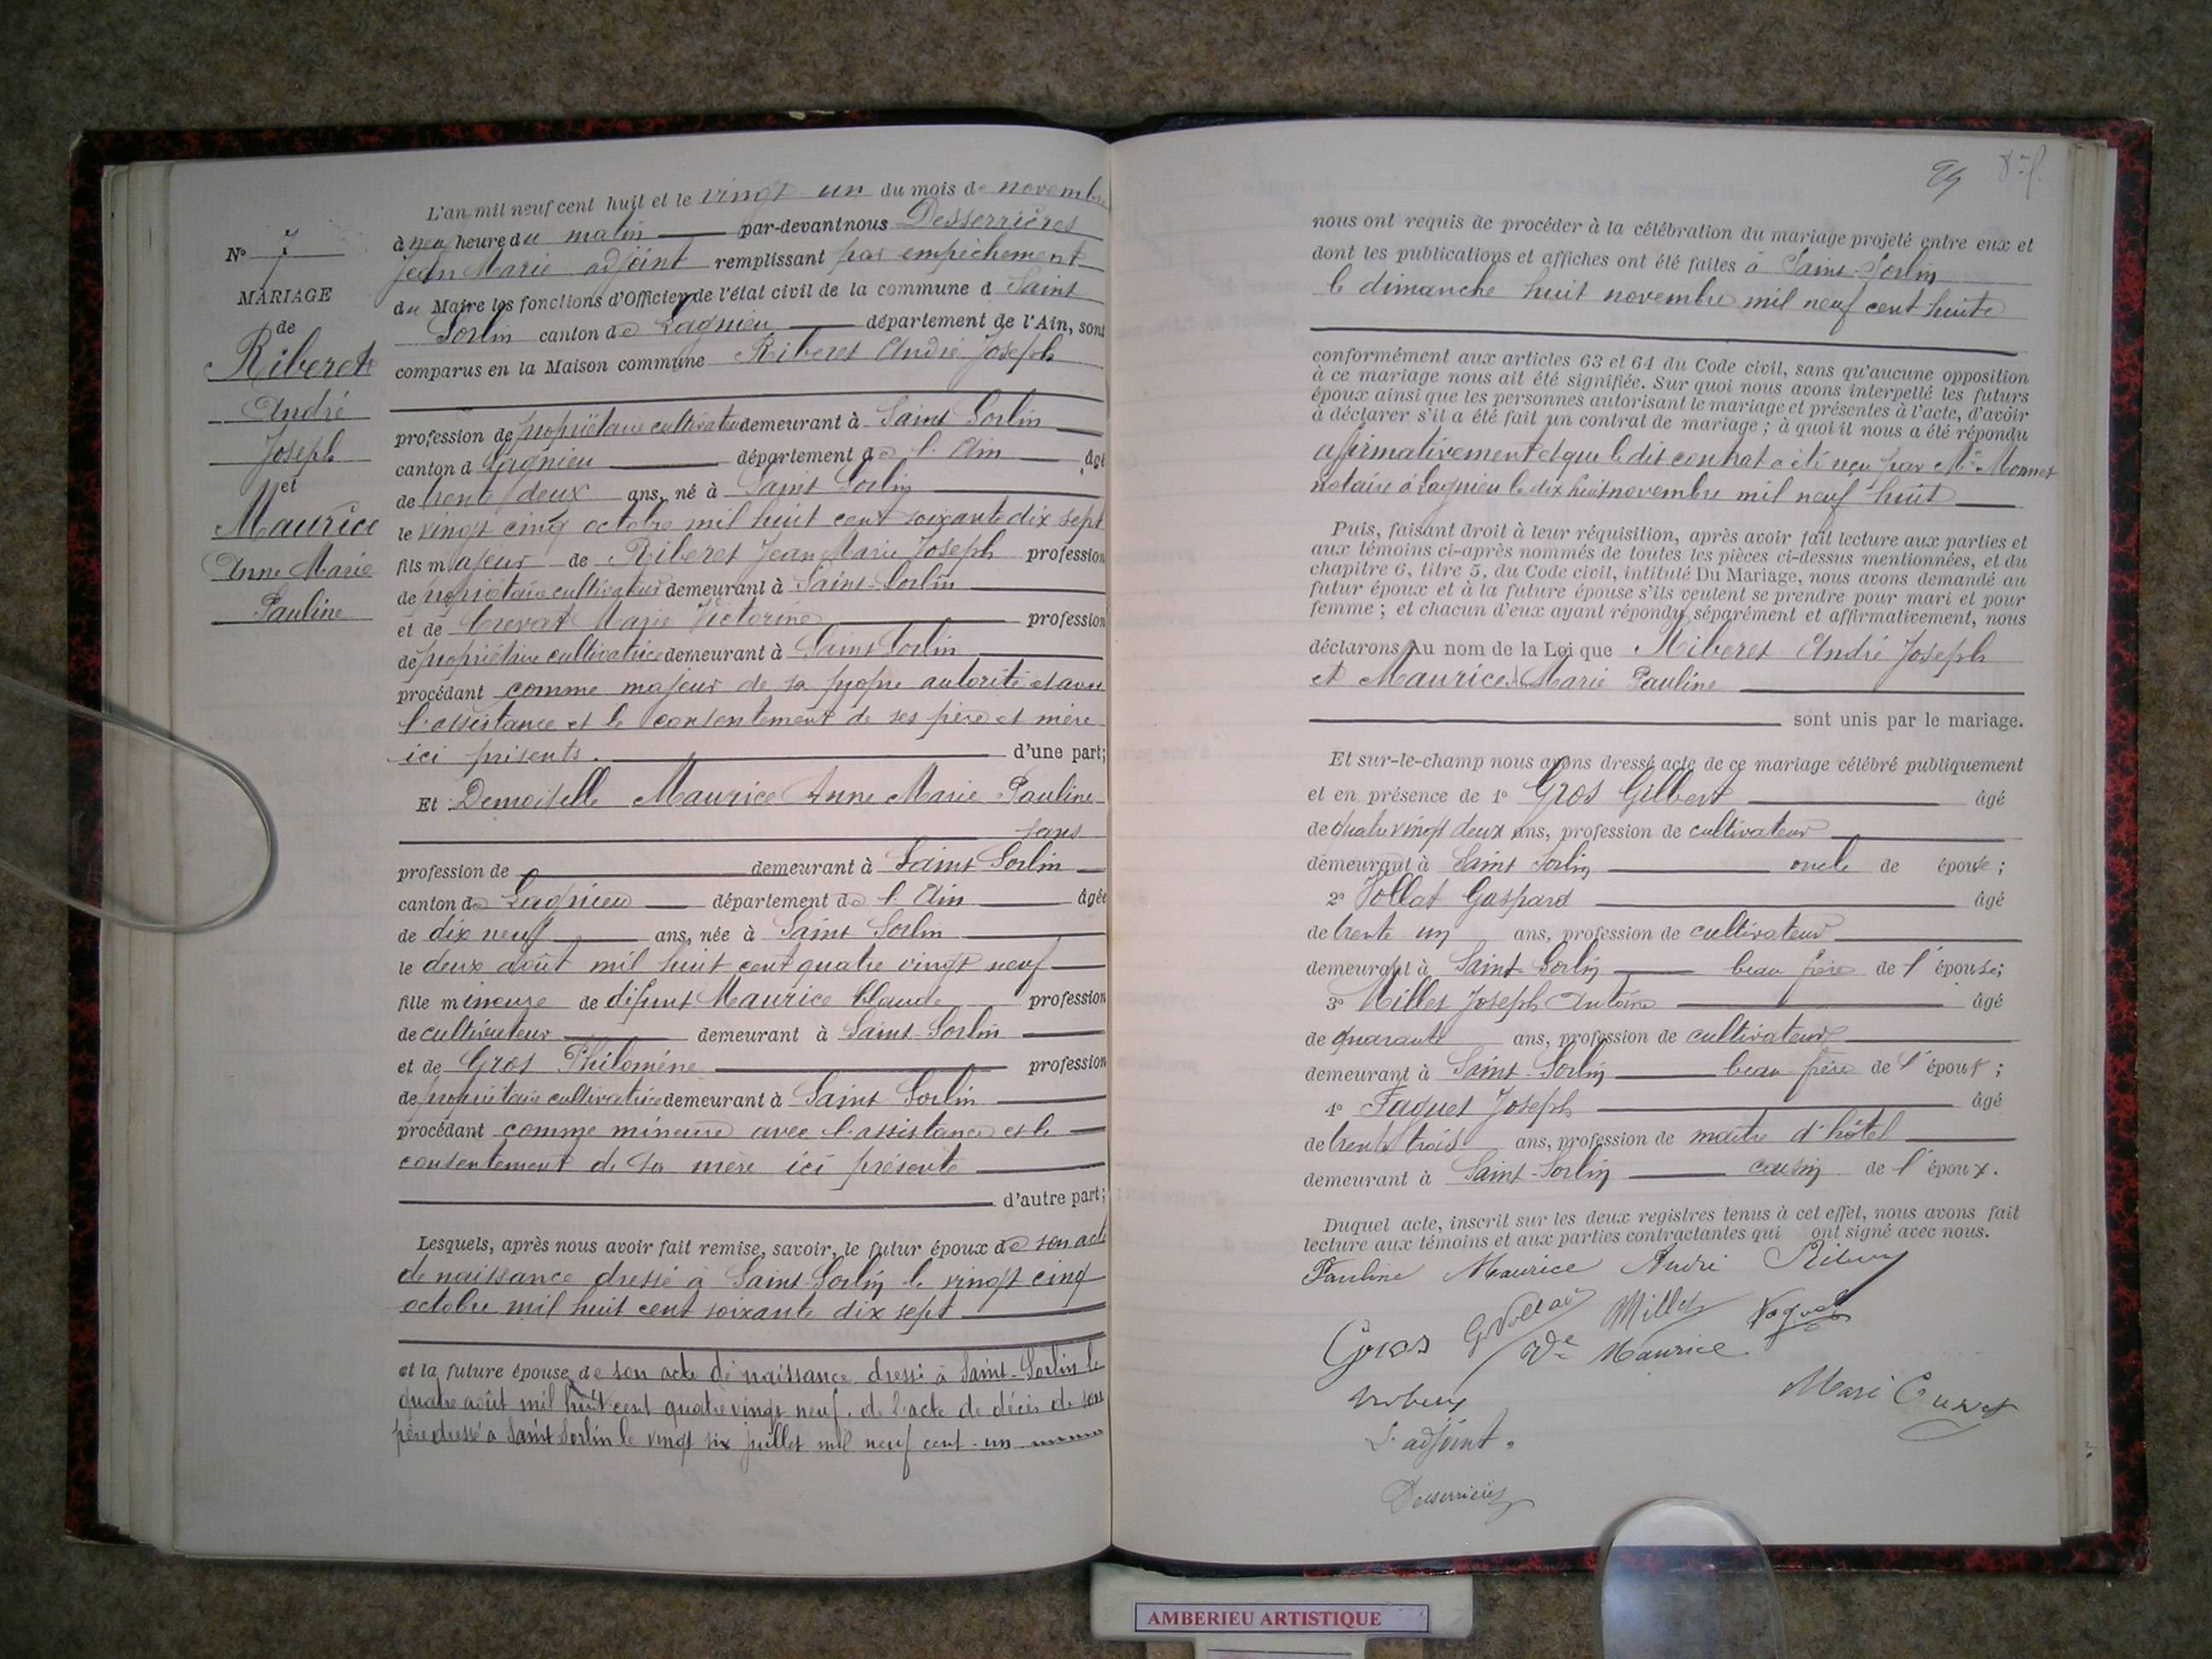 L'an mil neuf cent huit et le vingt un du mois de novembre
à neuf heure du matin par-devant nous Desserrières
Jean Marie adjoint remplissant par empêchement
du Maire les fonctions d'Officier de l'état civil de la commune d Saint
Sorlin canton de Lagnieu département de l'Ain, sont
comparus en la Maison commune Riberet André Joseph
N° 7
MARIAGE
de
Riberet
André
Joseph
et
Maurice
Anne Marie
Pauline
profession de propriétaire cultivateur demeurant à Saint Sorlin
canton d Lagnieu département de l'Ain âgé
de trente deux ans, né à Saint Sorlin
le vingt cinq octobre mil huit cent soixante dix sept
fils majeur de Riberet Jean Marie Joseph profession
de propriétaire cultivateur demeurant à Saint-Sorlin
et de Crevat Marie Victorine profession
de propriétaire cultivatrice demeurant à Saint Sorlin
procédant comme majeur de sa propre autorité et avec
l'assistance et le consentement de ses père et mère
ici présents. d'une part;
Et Demoiselle Maurice Anne Marie Pauline
sans
profession de demeurant à Saint Sorlin
canton de Lagnieu département de l'Ain âgée
de dix neuf ans, née à Saint Sorlin
le deux août mil huit cent quatre vingt neuf
fille mineure de défunt Maurice Claude profession
de cultivateur demeurant à Saint-Sorlin
et de Gros Philomène profession
de propriétaire cultivatrice demeurant à Saint Sorlin
procédant comme mineure avec l'assistance et le
consentement de sa mère ici présente
d'autre part;
Lesquels, après nous avoir fait remise, savoir, le futur époux de son acte
de naissance dressé à Saint-Sorlin le vingt cinq
octobre mil huit cent soixante dix sept
et la future épouse de son acte de naissance dressé à Saint-Sorlin le
quatre août mil huit cent quatre vingt neuf. de l'acte de décès de son
père dressé à Saint Sorlin le vingt six juillet mil neuf cent un
nous ont requis de procéder à la célébration du mariage projeté entre eux et
dont les publications et affiches ont été faites à Saint-Sorlin
le dimanche huit novembre mil neuf cent huit
conformément aux articles 63 et 64 du Code civil, sans qu'aucune opposition
à ce mariage nous ait été signifiée. Sur quoi nous avons interpellé les futurs
époux ainsi que les personnes autorisant le mariage et présentes à l'acte, d'avoir
à déclarer s'il a été fait un contrat de mariage; à quoi il nous a été répondu
afirmativement et que le dit contrat a été reçu par Me Monnet
notaire à Lagnieu le dix huit novembre mil neuf huit
Puis, faisant droit à leur réquisition, après avoir fait lecture aux parties et
aux témoins ci-après nommés de toutes les pièces ci-dessus mentionnées, et du
chapitre 6, titre 5, du Code civil, intitulé Du Mariage, nous avons demandé au
futur époux et à la future épouse s'ils veulent se prendre pour mari et pour
femme; et chacun d'eux ayant répondu séparément et affirmativement, nous
déclarons Au nom de la Loi que Riberet André Joseph
et Maurice Marie Pauline
sont unis par le mariage.
Et sur-le-champ nous avons dressé acte de ce mariage célébré publiquement
et en présence de 1° Gros Gilbert âgé
de quatre vingt deux ans, profession de cultivateur
demeurant à Saint Sorlin oncle de épouse;
2° Vollat Gaspard âgé
de trente un ans, profession de cultivateur
demeurant à Saint-Sorlin beau frère de l'épouse;
3° Millet Joseph Antoine âgé
de quarante ans, profession de cultivateur
demeurant à Saint-Sorlin beau frère de l'époux;
4° Faquet Joseph âgé
de trente trois ans, profession de maître d'hôtel
demeurant à Saint-Sorlin cousin de l'époux.
Duquel acte, inscrit sur les deux registres tenus à cet effet, nous avons fait
lecture aux témoins et aux parties contractantes qui ont signé avec nous.
Pauline Maurice André
Gros G Vollat Millet
Ve Maurice
L'adjoint.
Desserrières
AMBERIEU ARTISTIQUE